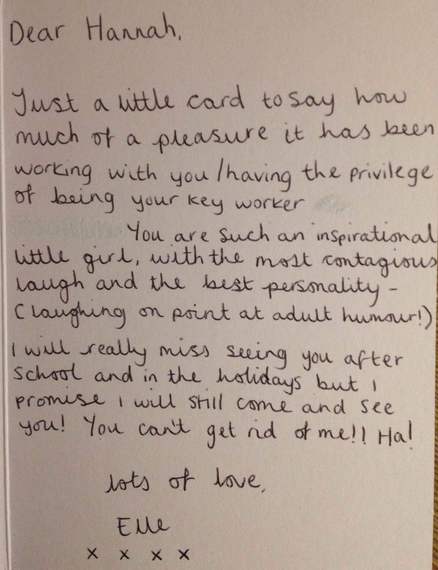 Dear Hannah,
Just a little card to say how
much of a pleasure it has been
working with you/having the privilege
of being your key worker
You are such an inspirational
little girl, with the most contagious
laugh and the best personality -
(laughing on point at adult humour!)
I will really miss seeing you after
school and in the holidays but I
promise I will still come and see
you! You can't get rid of me!! Ha!
lots of love,
Elle
x x x x